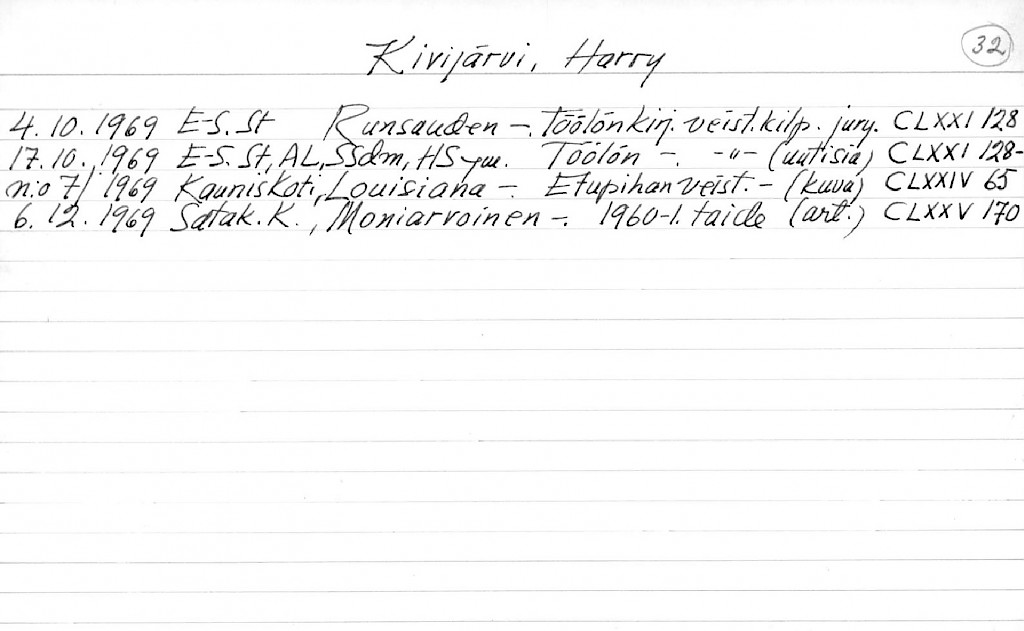 Kivijärvi, Harry 32
4.10.1969 E-S.St Runsauden -. Töölön kirj. veist.kilp. jury. CLXXI 128
17.10.1969 E-S.St, AL, SSdm, HS ym. Töölön -. -"- (uutisia) CLXXI 128-
n:o 7/1969 Kaunis Koti, Louisiana -. Etupihan veist. - (kuva) CLXXIV 65
6.12.1969 Satak.K., Moniarvoinen -. 1960-l. taide (art.) CLXXV 170